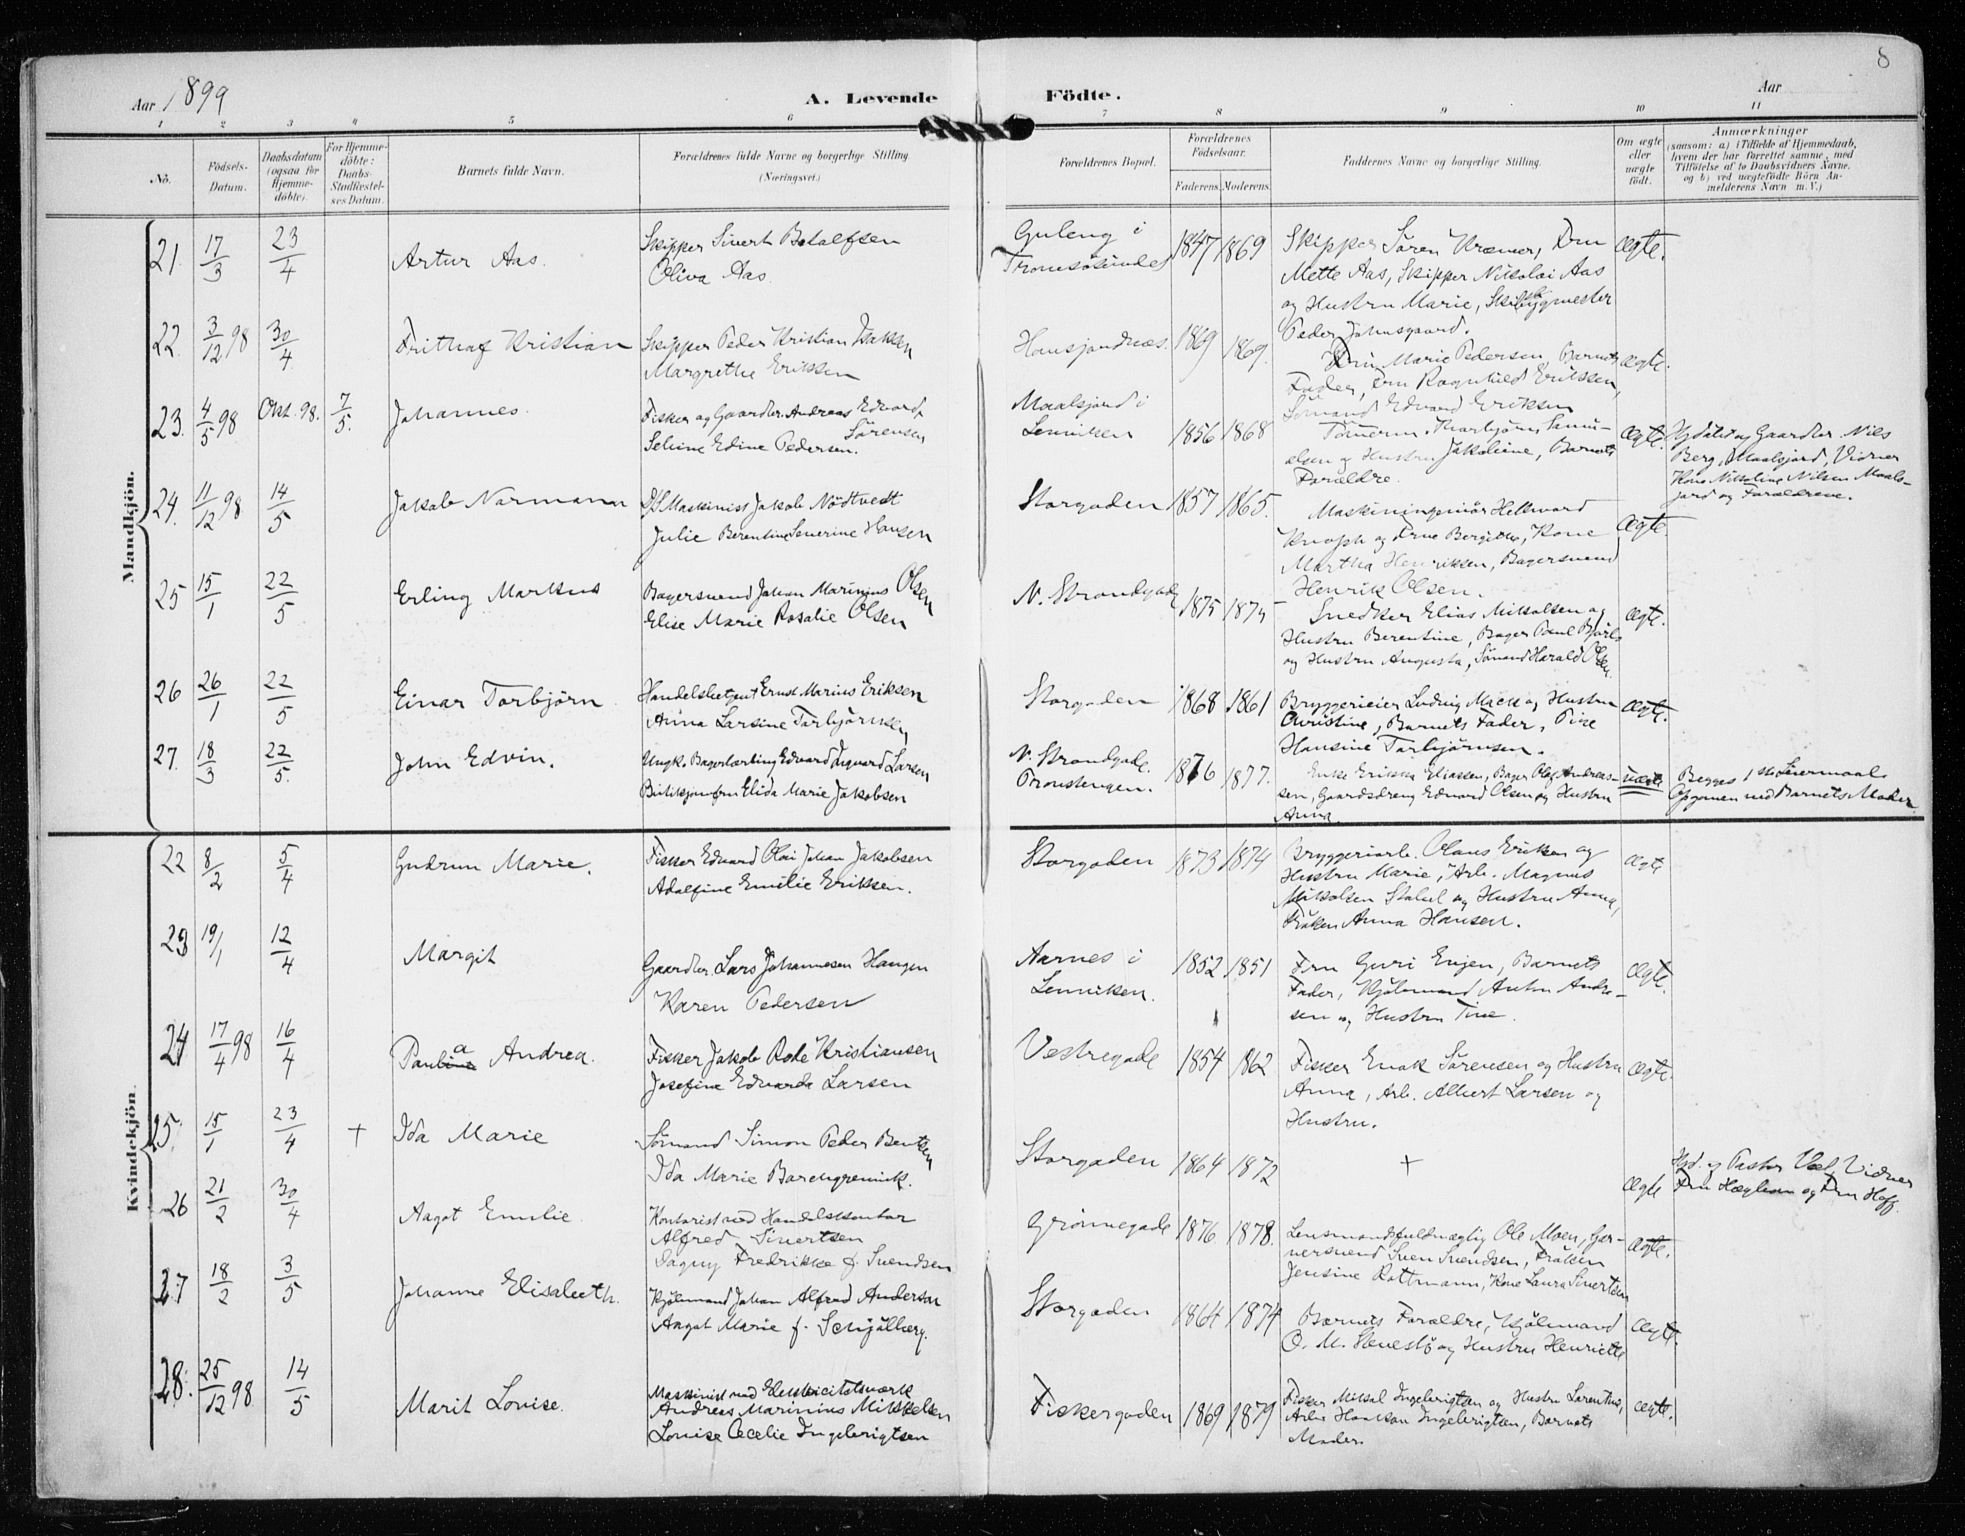 Aar 1899
A. Levende Födte.
Aar
8
1 2 3 4 5 6 7 8 9 10 11
No. Födsels-Datum. Daabsdatum (ogsaa for Hjemme-döbte). For Hjemme-döbte: Daabs-Stadfæstel-ses Datum. Barnets fulde Navn. Forældrenes fulde Navne og borgerlige Stilling (Næringsvei.) Forældrenes Bopæl. Forældrenes Födselsaar. Faderens. Moderens. Faddernes Navne og borgerlige Stilling. Om ægte eller uægte födt. Anmærkninger (saasom: a) i Tilfælde af Hjemmedaab, hvem der har forrettet samme, med Tilföielse af to Daabsvidners Navne, og b) ved uægtefödte Börn An-melderens Navn m. V.)
Mandkjön.
21. 17/3 23/4 Artur Aas. Skipper Sivert Botolfsen
Oliva Aas.
Guleng i
Tromsösundet 1847 1869 Skipper Sören Kræmer, Fru
Mette Aas, Skipper Nikolai Aas
og Hustru Marie, Skibsbygmester
Peder Johnsgaard. Ægte.
22. 3/12 98 30/4 Frithjof Kristian Skipper Peder Kristian Isaksen
Margrethe Eriksen
Hansjordnæs. 1869 1869. Fru Marie Pedersen, Barnets
Fader, Fru Ragnhild Eriksen,
Sömand Edvard Eriksen ægte.
23. 4/5 98 Okt. 98. 7/5. Johannes. Fisker og Gaardbr. Andreas Edvard
Sörensen
Seline Edine Pedersen.
Maalsjord i
Lenviken 1856 1868 Tömerm. Thorbjörn Samu-
elsen og Hustru Jakobine, Barnets
Forældre. Ægte.
Hjdöbt af Gaardbr. Nils
Berg, Maalsjord, Vidner
Hans Nikolai Nilsen Maals-
jord og Forældrene.
24. 11/12 98 14/5 Jakob Normann D/S Maskinist Jakob Nödtvedt
Julie Berentine Severine Hansen
Storgaden 1857 1865. Maskiningeniör Hellvard
Knoph og Frue Bergitha, Kone
Martha Henriksen, Bagersvend
Henrik Olsen. Ægte.
25 15/1 22/5 Erling Markus Bagersvend Johan Marinius Olsen
Elise Marie Rosalie Olsen
N. Strandgade 1875 1875 Snedker Elias Mikalsen og
Hustru Berentine, Bager Paul
og Hustru Augusta, Sömand Harald Olsen Ægte.
26 26/1 22/5 Einar Torbjörn Handelsbetjent Ernst Marius Eriksen
Anna Larsine Torbjörnsen
Storgaden 1868 1861 Bryggerieier Ludvig Mack og Hustru
Christine, Barnets Fader, Pige
Hansine Torbjörnsen. Ægte.
27. 18/3 22/5. John Edvin. Ungk. Bagerlærling Edvard Ingvard Larsen
Elida Marie Jakobsen
N. Strandgade.
1876 1877. Enke Erikka Eliassen, Bager Olaf Andreas-
sen, Gaardsdreng Edvard Olsen og Hustru
Anna. uægte
Begges 1ste Leiermaal.
Opgiven ved Barnets Moder
Kvindekjön.
22 8/2 5/4 Gudrun Marie. Fisker Edvard Olai Johan Jakobsen
Adolfine Emilie Eriksen.
Storgaden 1873 1874 Bryggeriarb. Olaus Eriksen og
Hustru Marie, Arb. Magnus
Mikalsen og Hustru Anna,
Fröken Anna Hansen. Ægte
23 19/1 12/4 Margit Gaardbr. Lars Johannesen Haugen
Karen Pedersen
Aarnes i
Lenviken. 1852 1851 Fru Guri Engen, Barnets
Fader, Kjöbmand Anton Andre-
sen og Hustru Tine. Ægte.
24 17/4 98 16/4 Paulina Andrea. Fisker Jakob Rode Kristiansen
Josefine Edvarda Larsen
Vestregade 1854 1862 Fisker Enok Sörensen og Hustru
Anna, Arb. Albert Larsen og
Hustru. Ægte.
25. 15/1 23/4 + Ida Marie Sömand Simon Peder Bentsen
Ida Marie
Storgaden 1864 1872 + Ægte
Hjd. af Pastor Vidner
Fru og Fru Hoff.
26 21/2 30/4 Aagot Emilie. Kontorist ved Handelskontor
Alfred Sivertsen
Dagny Fredrikke f. Svendsen
Grönnegade 1876 1878. Lensmandsfuldmægtig Ole Moen, Gar-
versvend Sven Svendsen, Fröken
Jensine Rottmann, Kone Laura Sivertsen Ægte.
27 18/2 3/5 Johanne Elisabeth. Kjöbmand Johan Alfred Andersen
Aagot Marie f. Schjölberg.
Storgaden 1864 1874 Barnets Forældre, Kjöbmand
O. M. og Hustru Henriette Ægte.
28. 25/12 98 14/5 Marit Lovise. Maskinist ved Elektricitetsværk
Andreas Marinius Mikkelsen
Lovise Cecelie Ingebrigtsen
Fiskergaden 1869 1879 Fisker Mikal Ingebrigtsen og Hustru Larentine,
Arb. Ingebrigtsen, Barnets
Moder. Ægte.